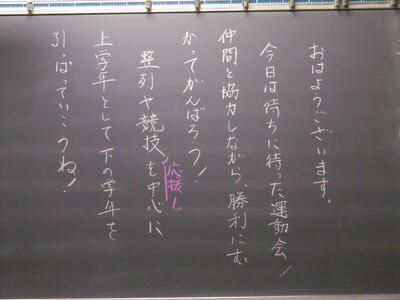 おはようございます。
今日は待ちに待った運動会！
仲間と協力しながら、勝利にむ
かってがんばろう！
整列や競技を中心に
応援し
上学年として下の学年を
引っぱっていこうね！